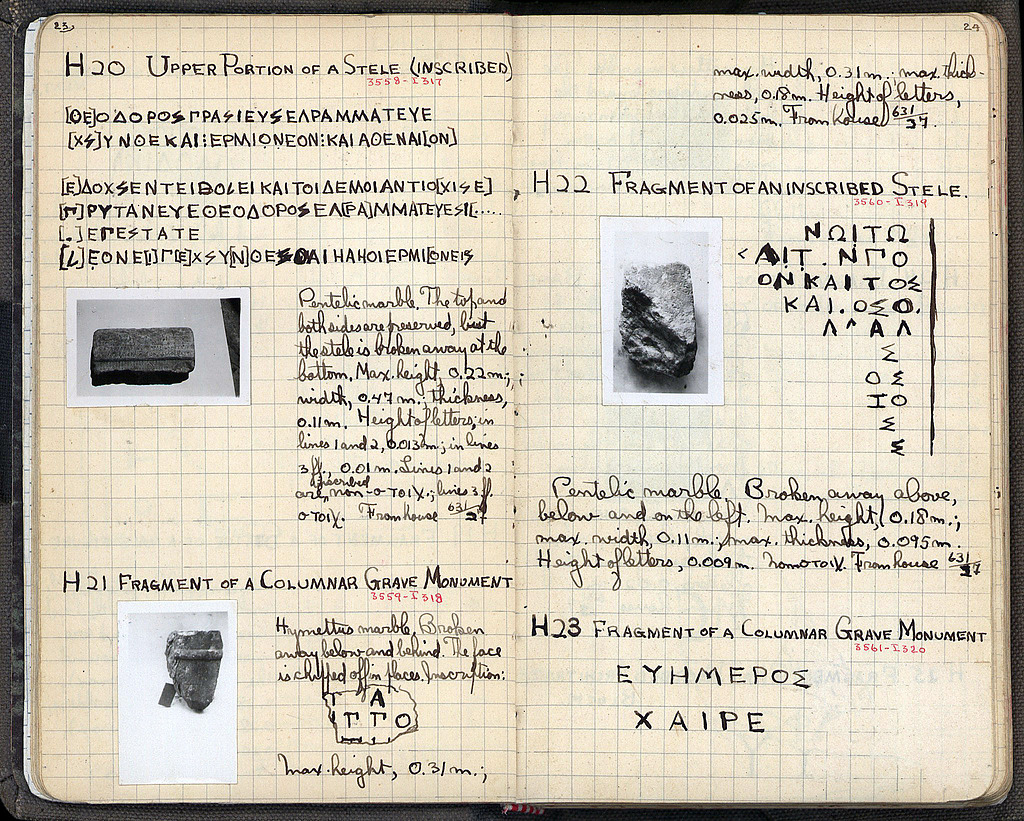 23
H 20 UPPER PORTION OF A STELE (INSCRIBED)
3558-I 317
[ΘΕ]ΟΔΟΡΟΣ ΠΡΑΣΙΕΥΣ ΕΛΡΑΜΜΑΤΕΥΕ
[ΧΣ]ΥΝΘΕΚΑΙ⋮ΕΡΜΙΟΝΕΟΝ⋮ΚΑΙ ΑΘΕΝΑΙ[ΟΝ]
[Ε]ΔΟΧΣΕΝΤΕΙΒΟΛΕΙΚΑΙΤΟΙΔΕΜΟΙΑΝΤΙΟ[ΧΙΣΕ]
[Π]ΡΥΤΑΝΕΥΕΘΕΟΔΟΡΟΣΕΛ[ΡΑ]ΜΜΑΤΕΥΕΣΙ[.....
[.]ΕΠΕΣΤΑΤΕ
[L]ΕΟΝΕ[Ι]ΠΕ[ΧΣΥ[Ν]ΘΕΣΘΑΙΗΑΗΟΙΕΡΜΙ[ΟΝΕΙΣ
Pentelic marble. The top and
both sides are preserved, but
the stele is broken away at the
bottom. Max. height, 0.22 m.;
width, 0.47 m.; thickness,
0.11 m. Height of letters, in
lines 1 and 2, 0.013 m.; in lines
3 ff., 0.01 m. Lines 1 and 2
inscribed
are, non-στοιχ.; lines 3 ff.
στοιχ. From house 631/27
H 21 FRAGMENT OF A COLUMNAR GRAVE MONUMENT
3559-I 318
Hymettus marble. Broken
away below and behind. The face
is chipped off in places. Inscription:
Γ Α
ΙΠΠΟ
Max. height, 0.31 m.;
24
max. width, 0.31 m.; max. thick-
ness, 0.18 m. Height of letters,
0.025 m. From house 631/27.
H 22 FRAGMENT OF AN INSCRIBED STELE.
3560-I 319
ΝΩΙΤΩ
<ΑΙΤ.ΝΠΟ
ΟΝΚΑΙΤΟΣ
ΚΑΙ.ΟΣΟ.
Λ^ΑΛ
Σ
ΟΣ
ΙΟ
Σ
Σ
Pentelic marble. Broken away above,
below and on the left. Max. height, 0.18 m.;
max. width, 0.11 m.; max. thickness, 0.095 m.
Height of letters, 0.009 m. Nonστοιχ. From house 631/27
H 23 FRAGMENT OF A COLUMNAR GRAVE MONUMENT
3561-I 320
ΕΥΗΜΕΡΟΣ
ΧΑΙΡΕ